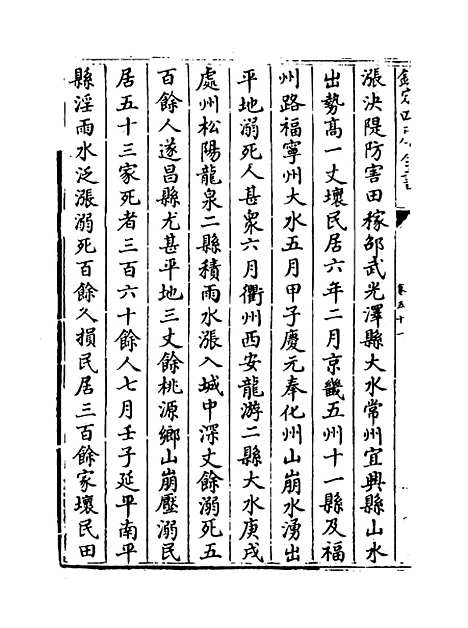 欽定四庫全書
卷五十一
漲決隄防害田稼邵武光澤縣大水常州宜興縣山水
出勢高一丈壞民居六年二月京畿五州十一縣及福
州路福寧州大水五月甲子慶元奉化州山崩水湧出
平地溺死人甚衆六月衢州西安龍游二縣大水庚戌
處州松陽龍泉二縣積雨水漲入城中深丈餘溺死五
百餘人遂昌縣尤甚平地三丈餘桃源鄉山崩壓溺民
居五十三家死者三百六十餘人七月壬子延平南平
縣淫雨水泛漲溺死百餘久損民居三百餘家壞民田